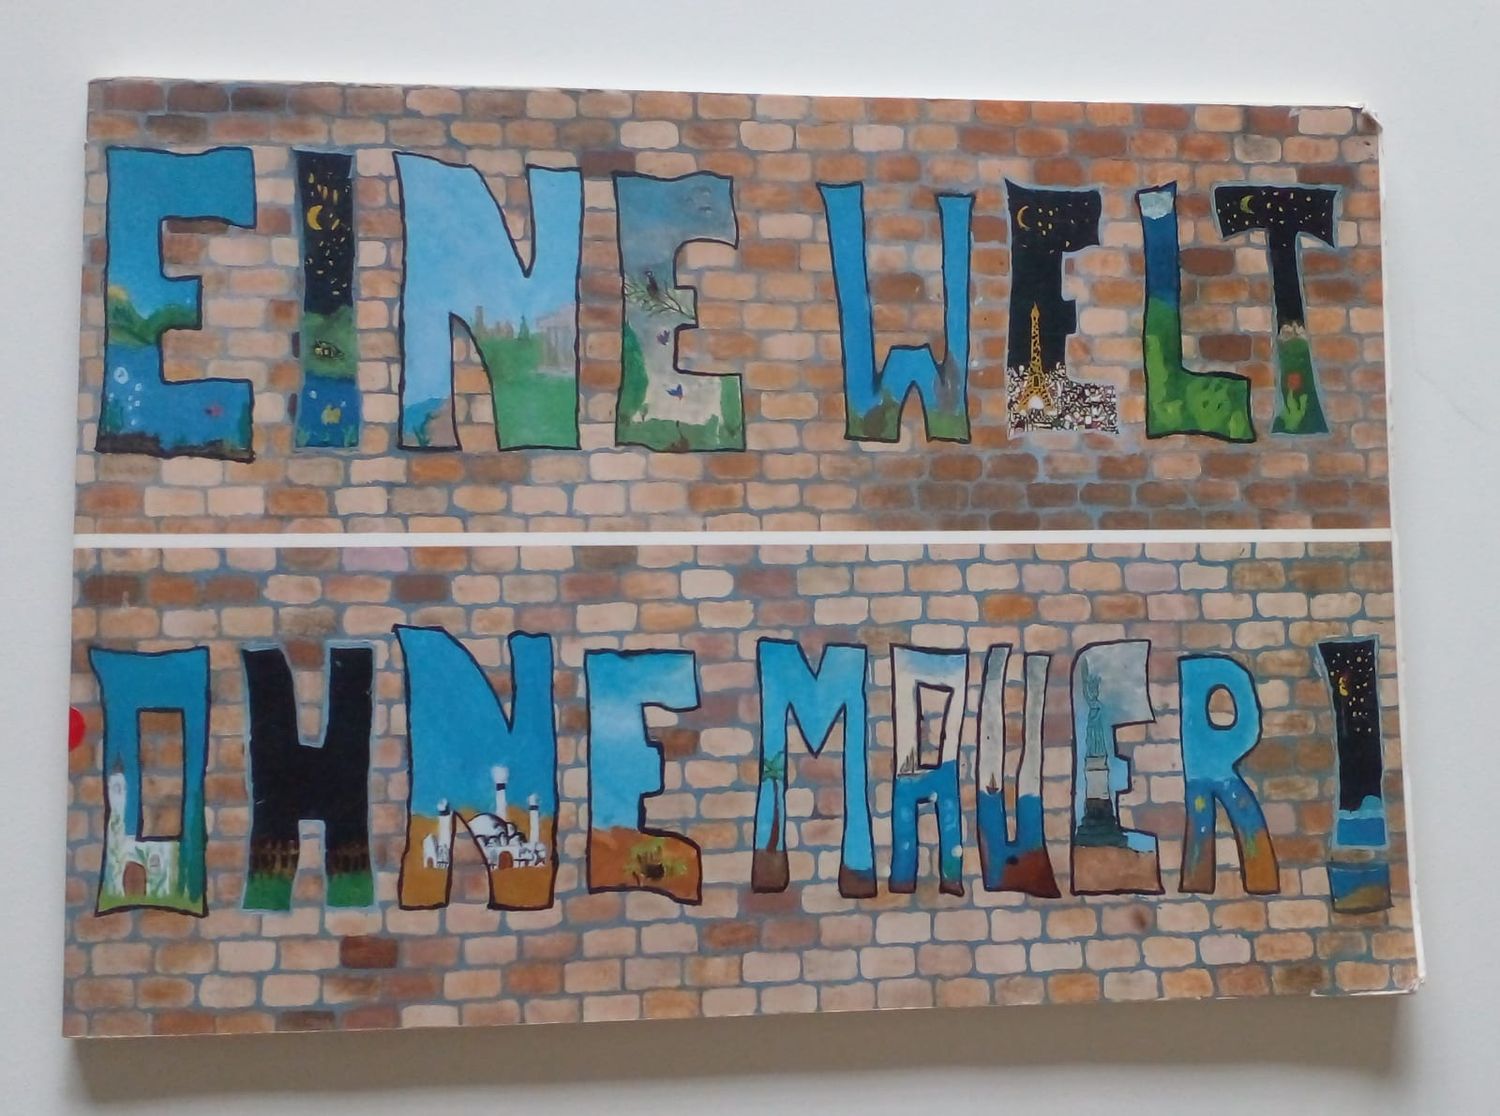 EINE WELT
OHNE MAUER!